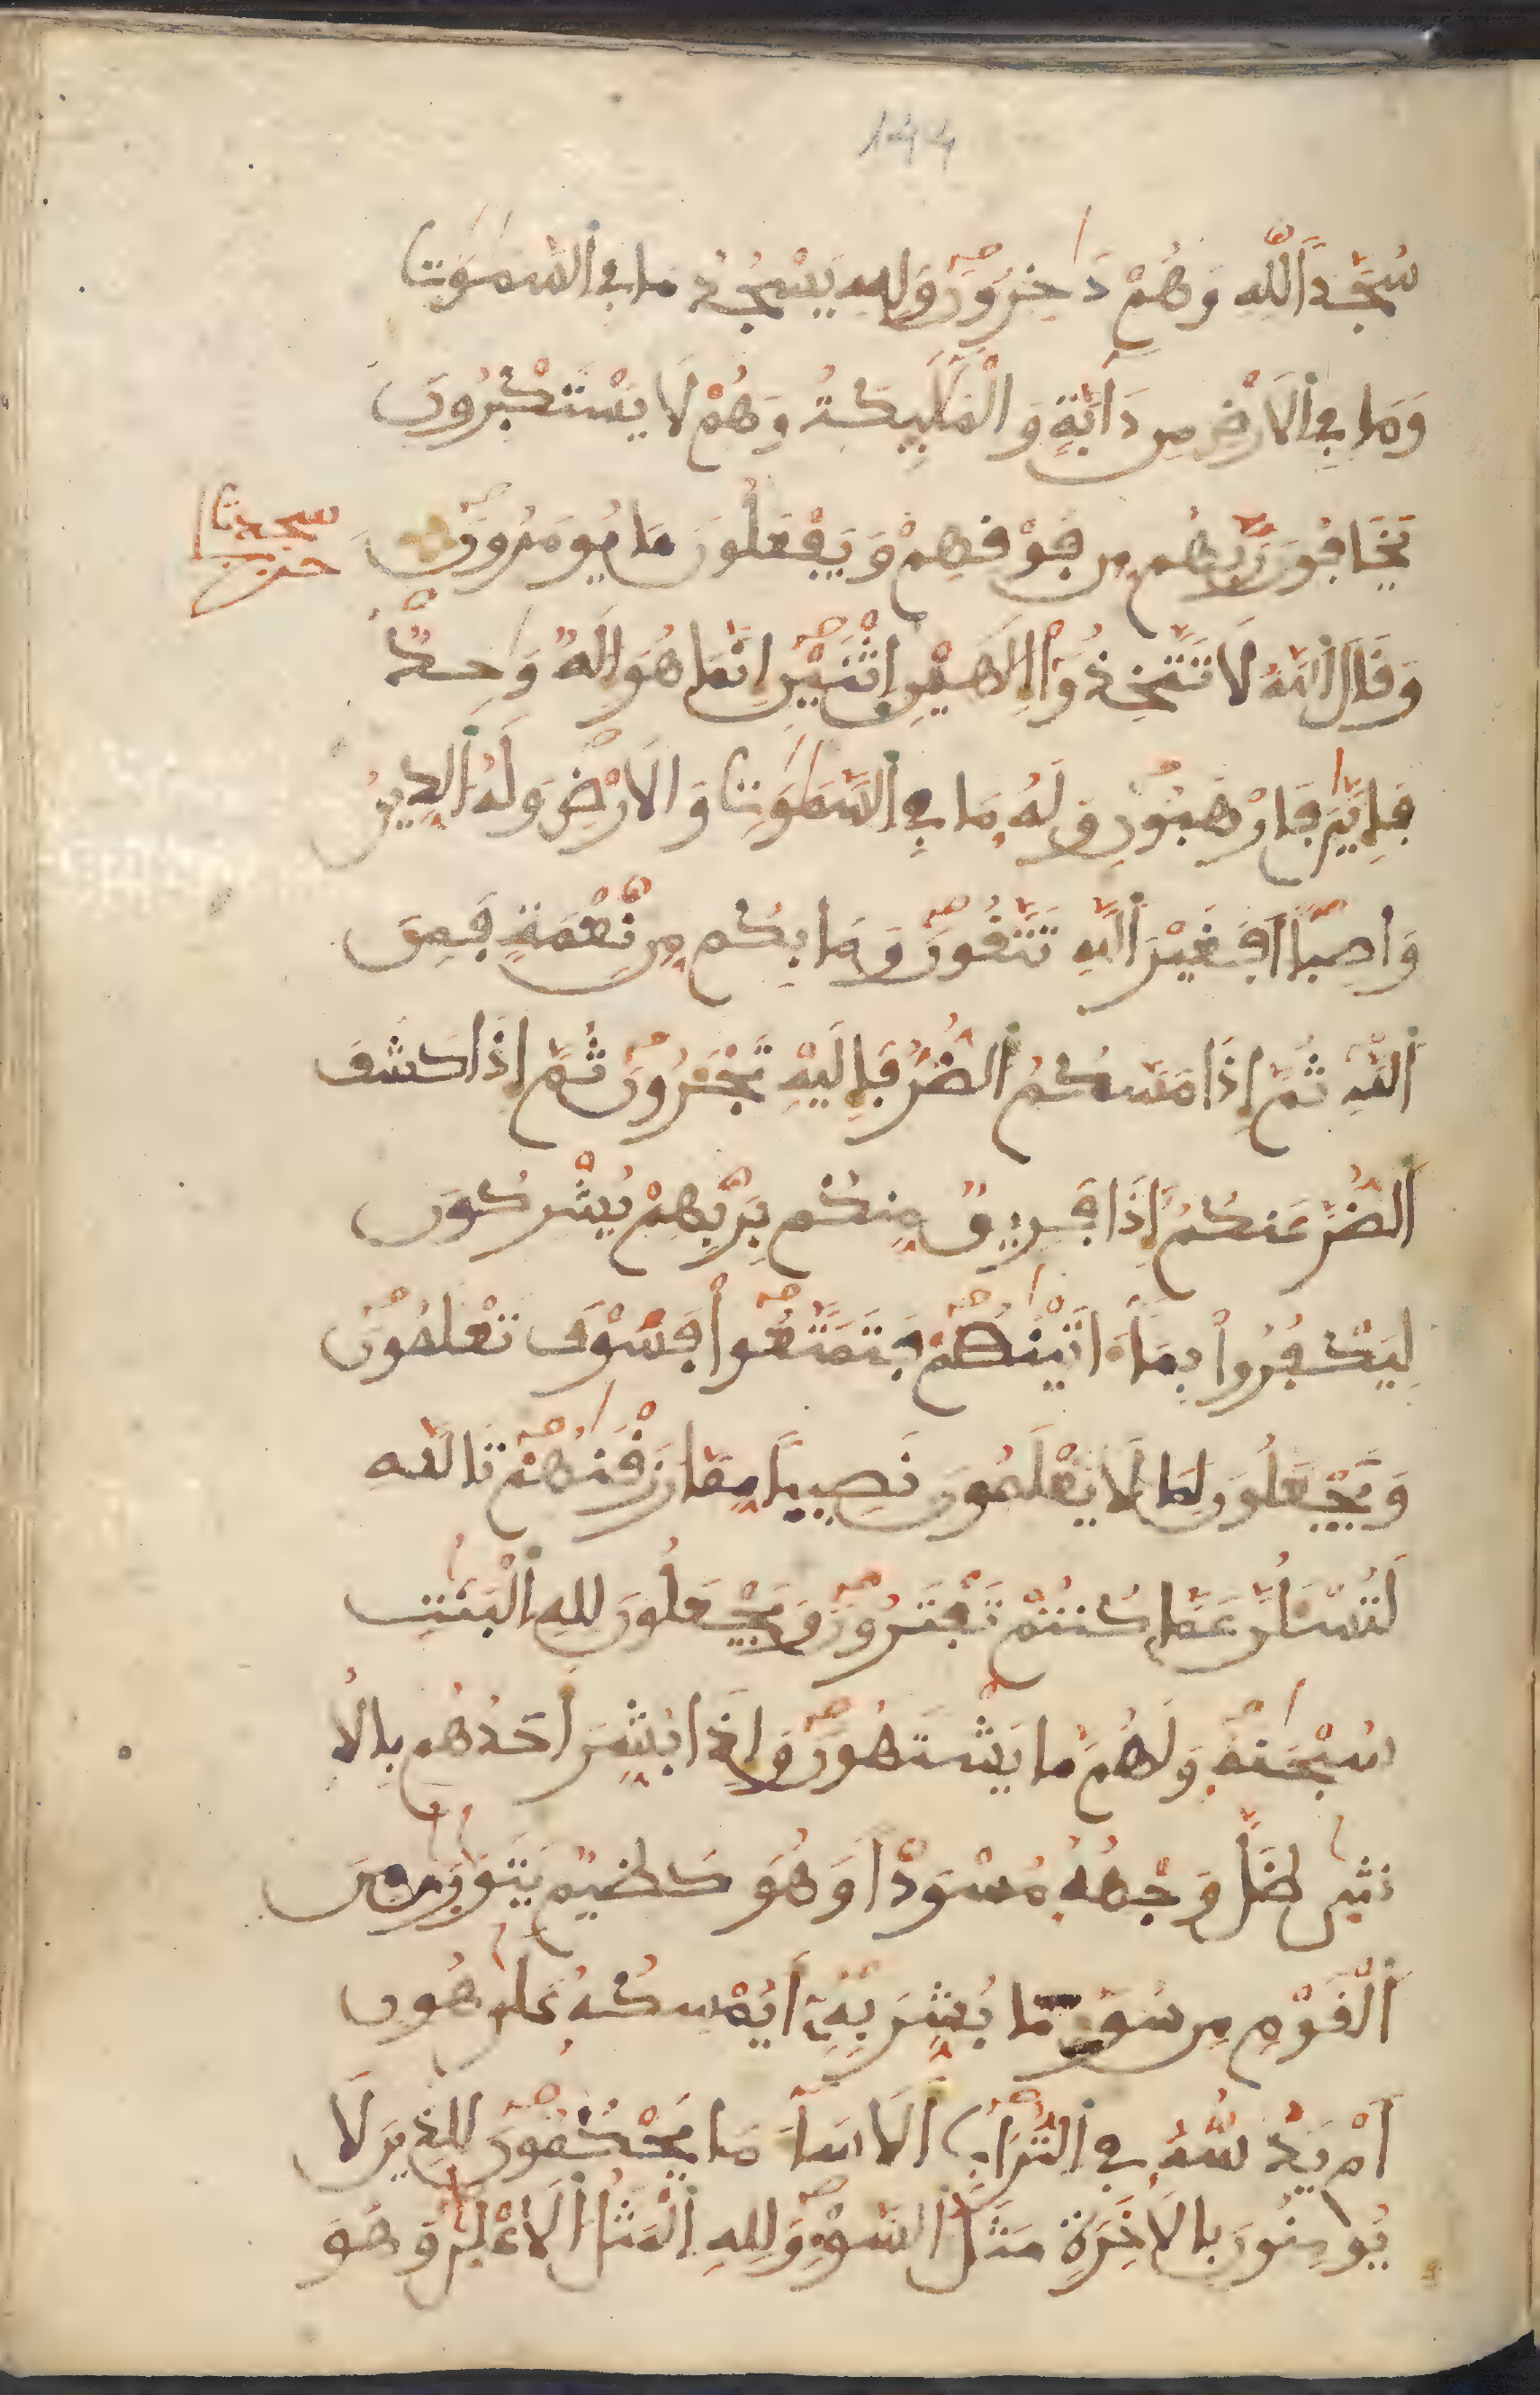 144
سُجَّدًا لِّلهِ وَهُمْ دَٰخِرُونَ وَلِلهِ يَسْجُدُ مَا فِي السَّمَٰوَٰتِ
وَمَا فِي الَارْضِ مِن دَآبَّةٍ وَالْمَلَٰٓئِكَةُ وَهُمْ لَا يَسْتَكْبِرُونَ
يَخَافُونَ رَبَّهُم مِّن فَوْقِهِمْ وَيَفْعَلُونَ مَا يُومَرُونَ
سجدة
حزب
وَقَالَ اللَّهُ لَا تَتَّخِذُوٓاْ إِلَٰهَيْنِ اِثْنَيْنِ إِنَّمَا هُوَ إِلَٰهٌ وَٰحِدٌ
فَإِيَّٰيَ فَارْهَبُونِ وَلَهُ مَا فِي السَّمَٰوَٰتِ وَالَارْضِ وَلَهُ الدِّينُ
وَاصِبًا اَفَغَيْرَ اللَّهِ تَتَّقُونَ وَمَا بِكُم مِّن نِّعْمَةٍ فَمِنَ
اَللَّهِ ثُمَّ إِذَا مَسَّكُمُ الضُّرُّ فَإِلَيْهِ تَجْـَٔرُونَ ثُمَّ إِذَا كَشَفَ
اَلضُّرَّ عَنكُمُ إِذَا فَرِيقٌ مِّنكُم بِرَبِّهِمْ يُشْرِكُونَ
لِيَكْفُرُواْ بِمَآ ءَاتَيْنَٰهُمْ فَتَمَتَّعُواْ فَسَوْفَ تَعْلَمُونَ
وَيَجْعَلُونَ لِمَا لَا يَعْلَمُونَ نَصِيبًا مِّمَّا رَزَقْنَٰهُمْ تَاللَّهِ
لَتُسْـَٔلُنَّ عَمَّا كُنتُمْ تَفْتَرُونَ وَيَجْعَلُونَ لِلهِ الْبَنَٰتِ
سُبْحَٰنَهُ وَلَهُم مَّا يَشْتَهُونَ وَإِذَا بُشِّرَ أَحَدُهُم بِالُا
نثَىٰ ظَلَّ وَجْهُهُ مُسْوَدًّا وَهُوَ كَظِيمٌ يَتَوَٰرَىٰ مِنَ
اَلْقَوْمِ مِن سُوٓءِ مَا بُشِّرَ بِهِ أَيُمْسِكُهُ عَلَىٰ هُونٍ
اَمْ يَدُسُّهُ فِي التُّرَابِ أَلَا سَآءَ مَا يَحْكُمُونَ لِلذِينَ لَا
يُومِنُونَ بِالَاخِرَةِ مَثَلُ السَّوْءِ وَلِلهِ الْمَثَلُ الَاعْلَىٰ وَهُوَ